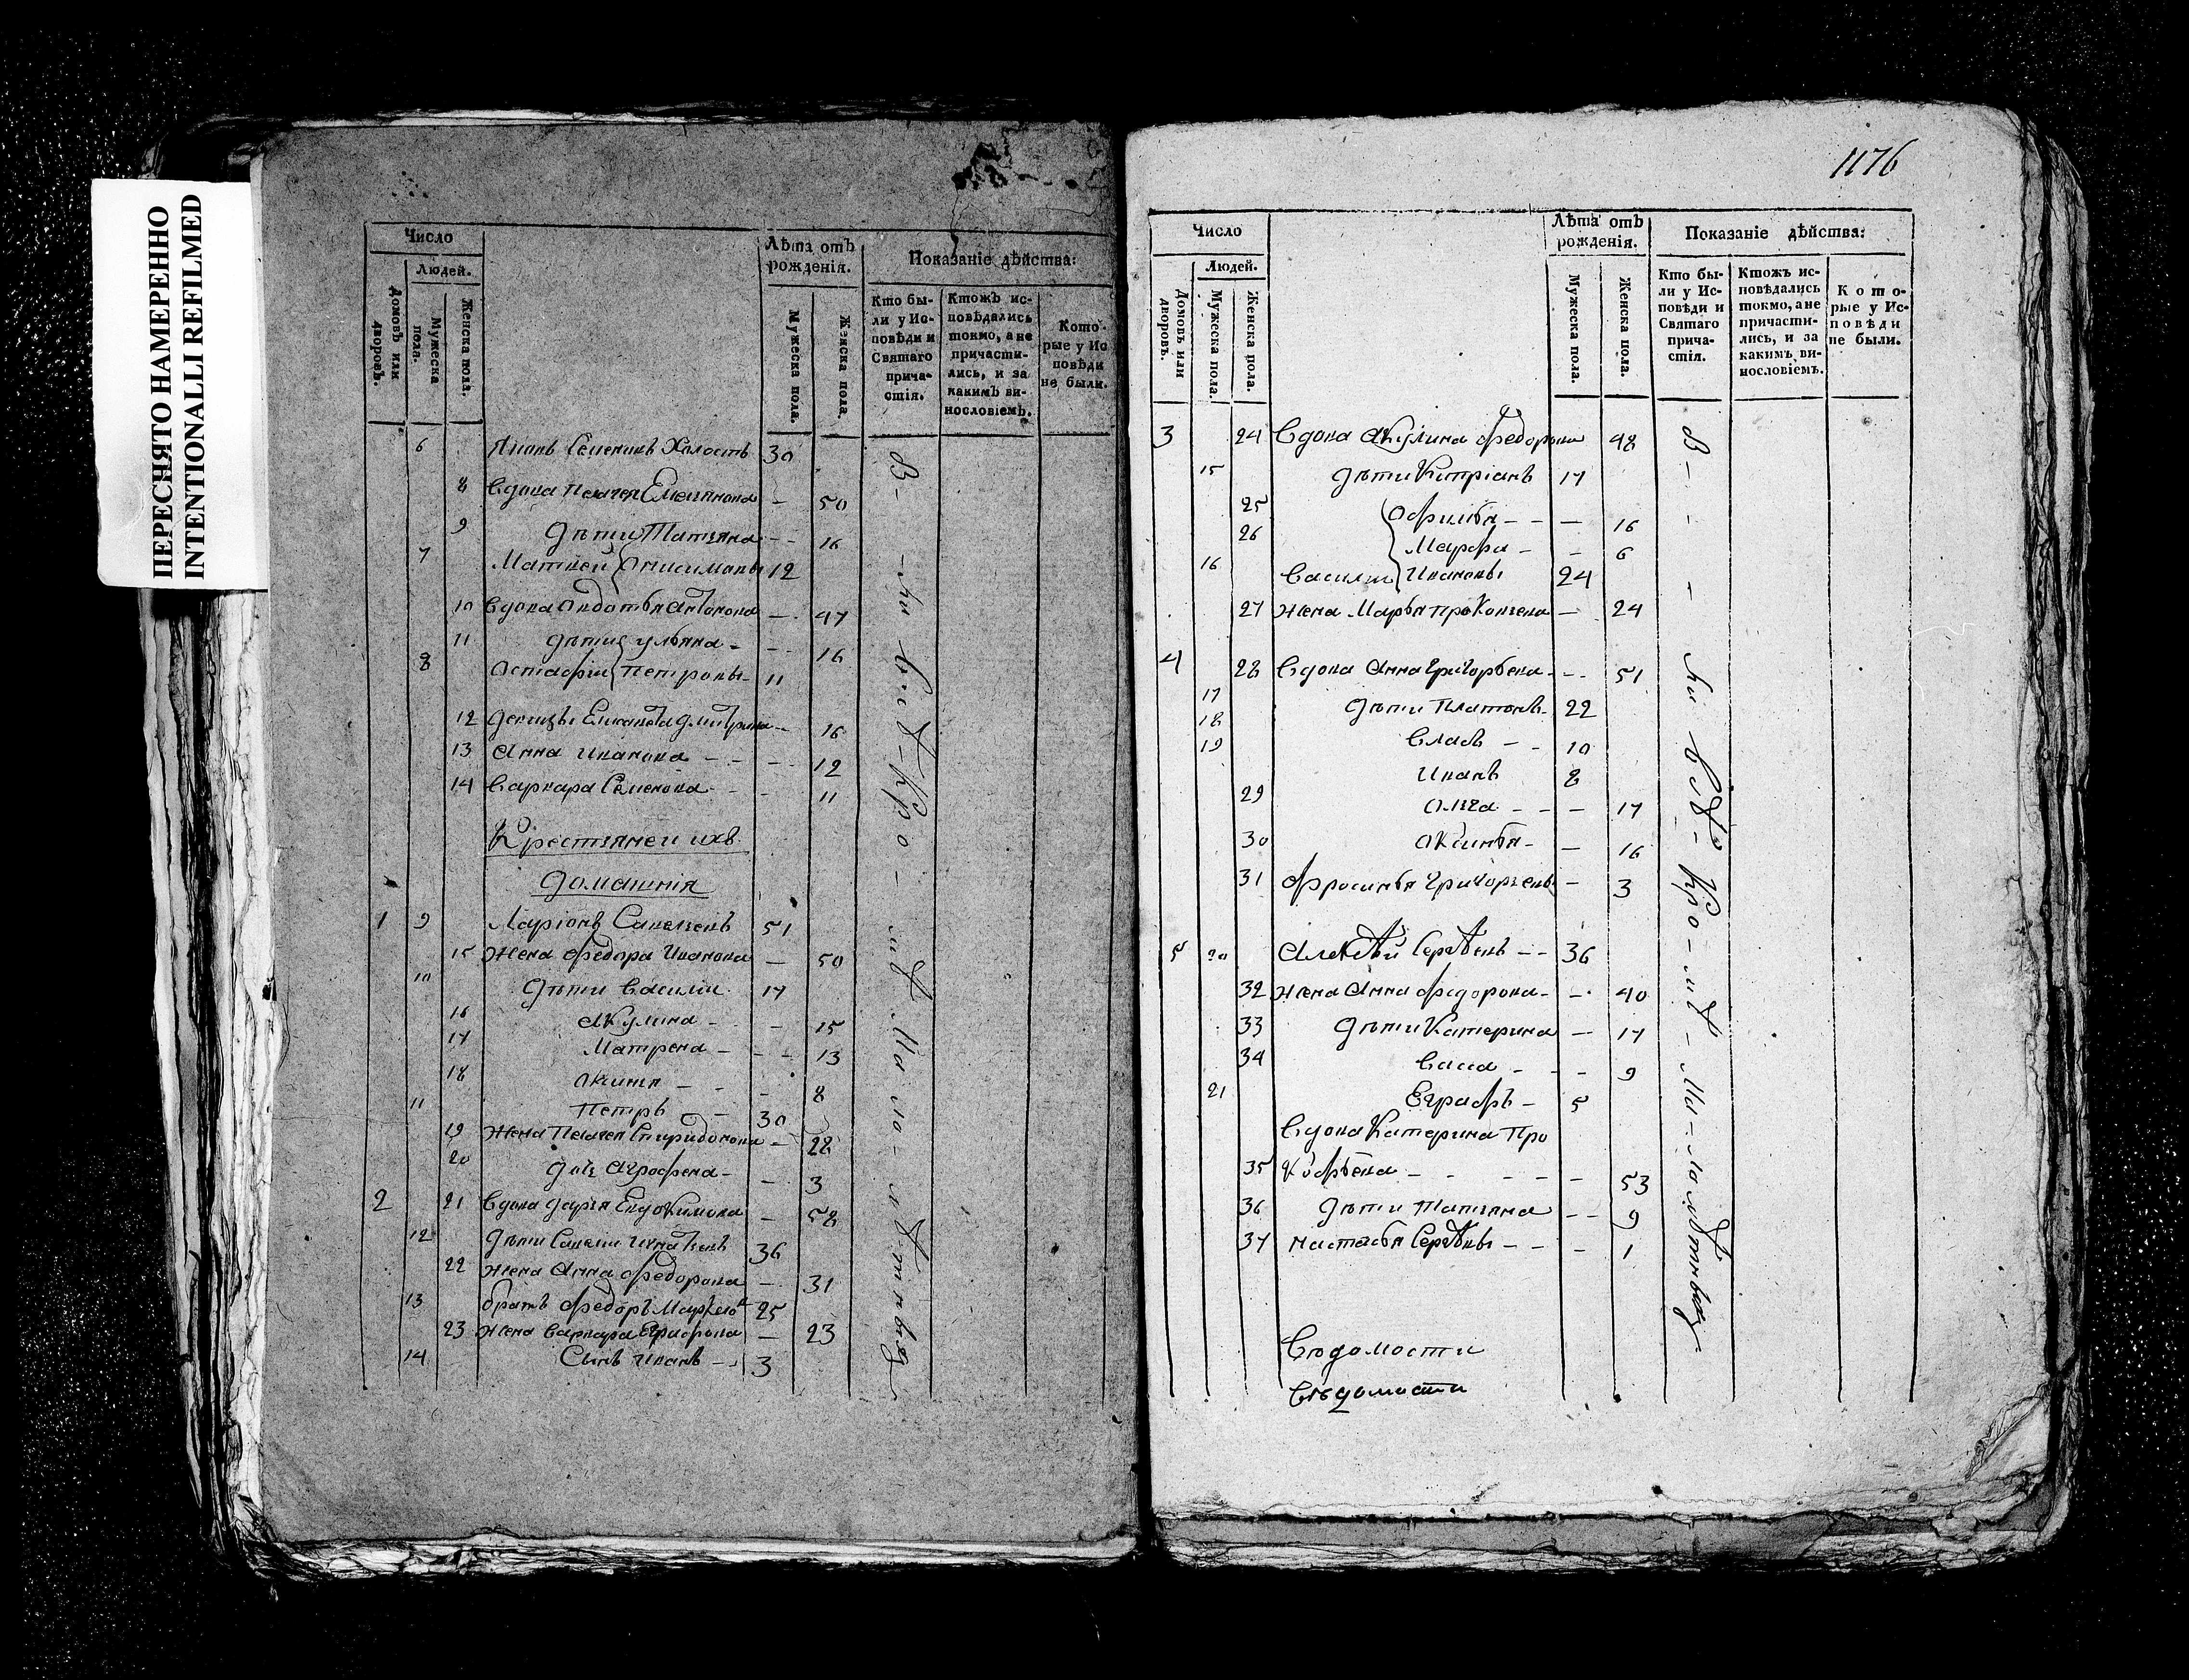 ПЕРЕСНЯТО НАМЕРЕННО
INTENTIONALLI REFILMED
Число
Людей.
Домовъ или дворовъ.
Мужеска пола.
Женска пола.
Лѣта отъ рожденія.
Мужеска пола.
Женска пола.
Показаніе дѣйства:
Кто были у Исповѣди и Святаго причастія.
Ктожъ исповѣдались токмо, а не причастились, и за какимъ винословіемъ.
Которые у Исповѣди не были.
6 Семеновъ Холостъ 30
8 Вдова Пелагея Емельянова – 50
9 Дѣти Татьяна – 16
7 Матвей Онисимовы 12
10 Вдова Овдотья Антонова – 47
11 Дѣти Ульяна – 16
8 Остафiи Петровы 11
12 Девицы Елисавета Дмитрiева – 16
13 Анна Иванова – 12
14 Варвара Семенова – 11
Крестьяне ихъ
Домашнiя
1 9 Ларiонъ Савельевъ 51
15 Жена Федора Иванова – 50
10 Дѣти Василiи 17
16 Акулина – 15
17 Матрена – 13
18 Оксинья – 8
11 Петръ 30
19 Жена Пелагея Спиридонова – 28
20 Дочь Агрофена – 3
2 21 Вдова Дарья Евдокимова – 58
12 Дѣти Савелiи Игнатьевъ 36
22 Жена Анна Федорова – 31
13 братъ Федоръ 25
23 Жена Варвара Еграфова – 23
14 Сынъ Иванъ 3
1176
Число
Людей.
Домовъ или дворовъ.
Мужеска пола.
Женска пола.
Лѣта отъ рожденія.
Мужеска пола.
Женска пола.
Показаніе дѣйства:
Кто были у Исповѣди и Святаго причастія.
Ктожъ исповѣдались токмо, а не причастились, и за какимъ винословіемъ.
Которые у Исповѣди не были.
3 24 Вдова Акулина Федорова 48
15 Дѣти Кипрiанъ 17
25 Офимья – 16
26 Марфа – 6
16 Василiи Ивановы 24
27 Жена Марья Прокопьева – 24
4 28 Вдова Анна Григорьева – 51
17 Дѣти Платонъ 22
18 Власъ – 10
19 Иванъ 8
29 Ольга – 17
30 Оксинья – 16
31 Офросинья Григорьевы – 3
5 20 Алексѣй Сергѣевъ – 36
32 Жена Анна Федорова – 40
33 Дѣти Катерина – 17
34 Васса – 9
21 Еграфъ – 5
Вдова Катерина Про
35 кофьева – 53
36 Дѣти Татьяна – 9
37 Настасья Сергѣевы – 1
Вѣдомости
Вѣдомости